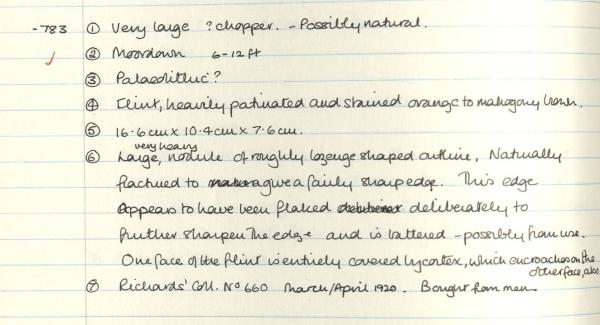 -783 ① Very large ? chopper. - Possibly natural.
② Moordown 6-12ft
③ Palaeolithic?
④ Flint, heavily patinated and stained orange to mahogany brown.
⑤ 16.6cm x 10.4cm x 7.6cm.
very heavy
⑥ Large, nodule of roughly lozenge shaped outline, Naturally
fractured to give a fairly sharp edge. This edge
Appears to have been flaked deliberately to
further sharpen the edge and is battered - possibly from use.
One face of the flint is entirely covered by cortex, which encroaches on the
other face, also.
⑦ Richards' Coll. No 660 March/April 1920. Bought from men.